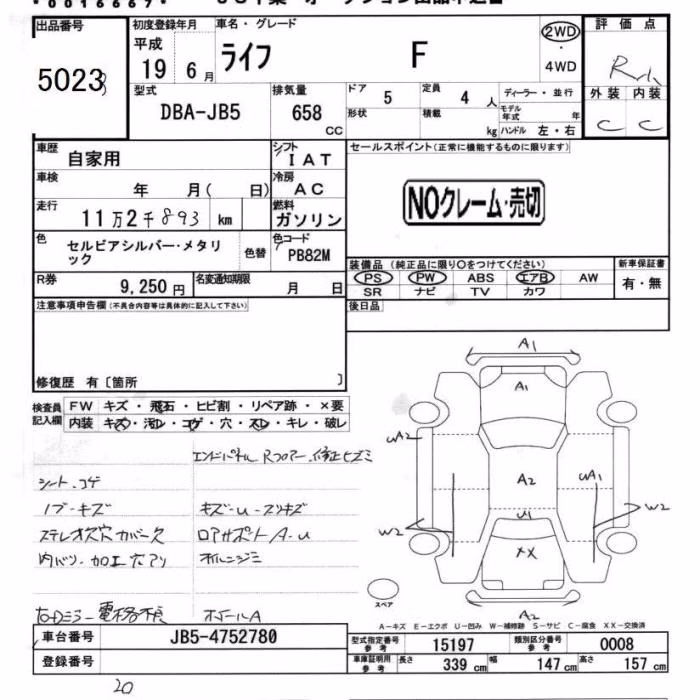 出品番号
5023
初度登録年月
平成
19 年 6 月
車名・グレード
ライフ F
2WD
・
4WD
評価点
外装 内装
C C
型式
DBA-JB5
排気量
658
CC
ドア
5
定員
4 人
形状
積載
kg
ディーラー・並行
モデル年式 年
ハンドル 左・右
車歴
自家用
シフト
IAT
車検
年 月( 日)
冷房
AC
走行
11万2千893 km
燃料
ガソリン
色
セルビアシルバー・メタリ
ック
色替
色コード
PB82M
R券
9,250 円
名変通知期限
月 日
セールスポイント(正常に機能するものに限ります)
NOクレーム・売切
装備品 (純正品に限り〇をつけてください)
PS PW ABS エアB AW
SR ナビ TV カワ
新車保証書
有・無
後日品
注意事項申告欄(不具合内容等は具体的に記入して下さい)
修復歴 有〔箇所 〕
検査員
記入欄
FW キズ・飛石・ヒビ割・リペア跡・×要
内装 キズ・汚レ・コゲ・穴・スレ・キレ・破レ
エンドパネル Rフロアー修正ヒズミ
シート.コゲ
ノブ-キズ
キズ-u-スリキズ
ロアサポートA-u
内バリ-加工穴アリ
A1
A1
uA2
A2
uA1
W2
W2
u1
XX
A2
スペア
A-キズ E-エクボ U-凹み W-補修跡 S-サビ C-腐食 XX-交換済
車台番号
JB5-4752780
登録番号
型式指定番号
参考
15197
類別区分番号
参考
0008
車庫証明用
参考
長さ 339 cm
幅 147 cm
高さ 157 cm
20